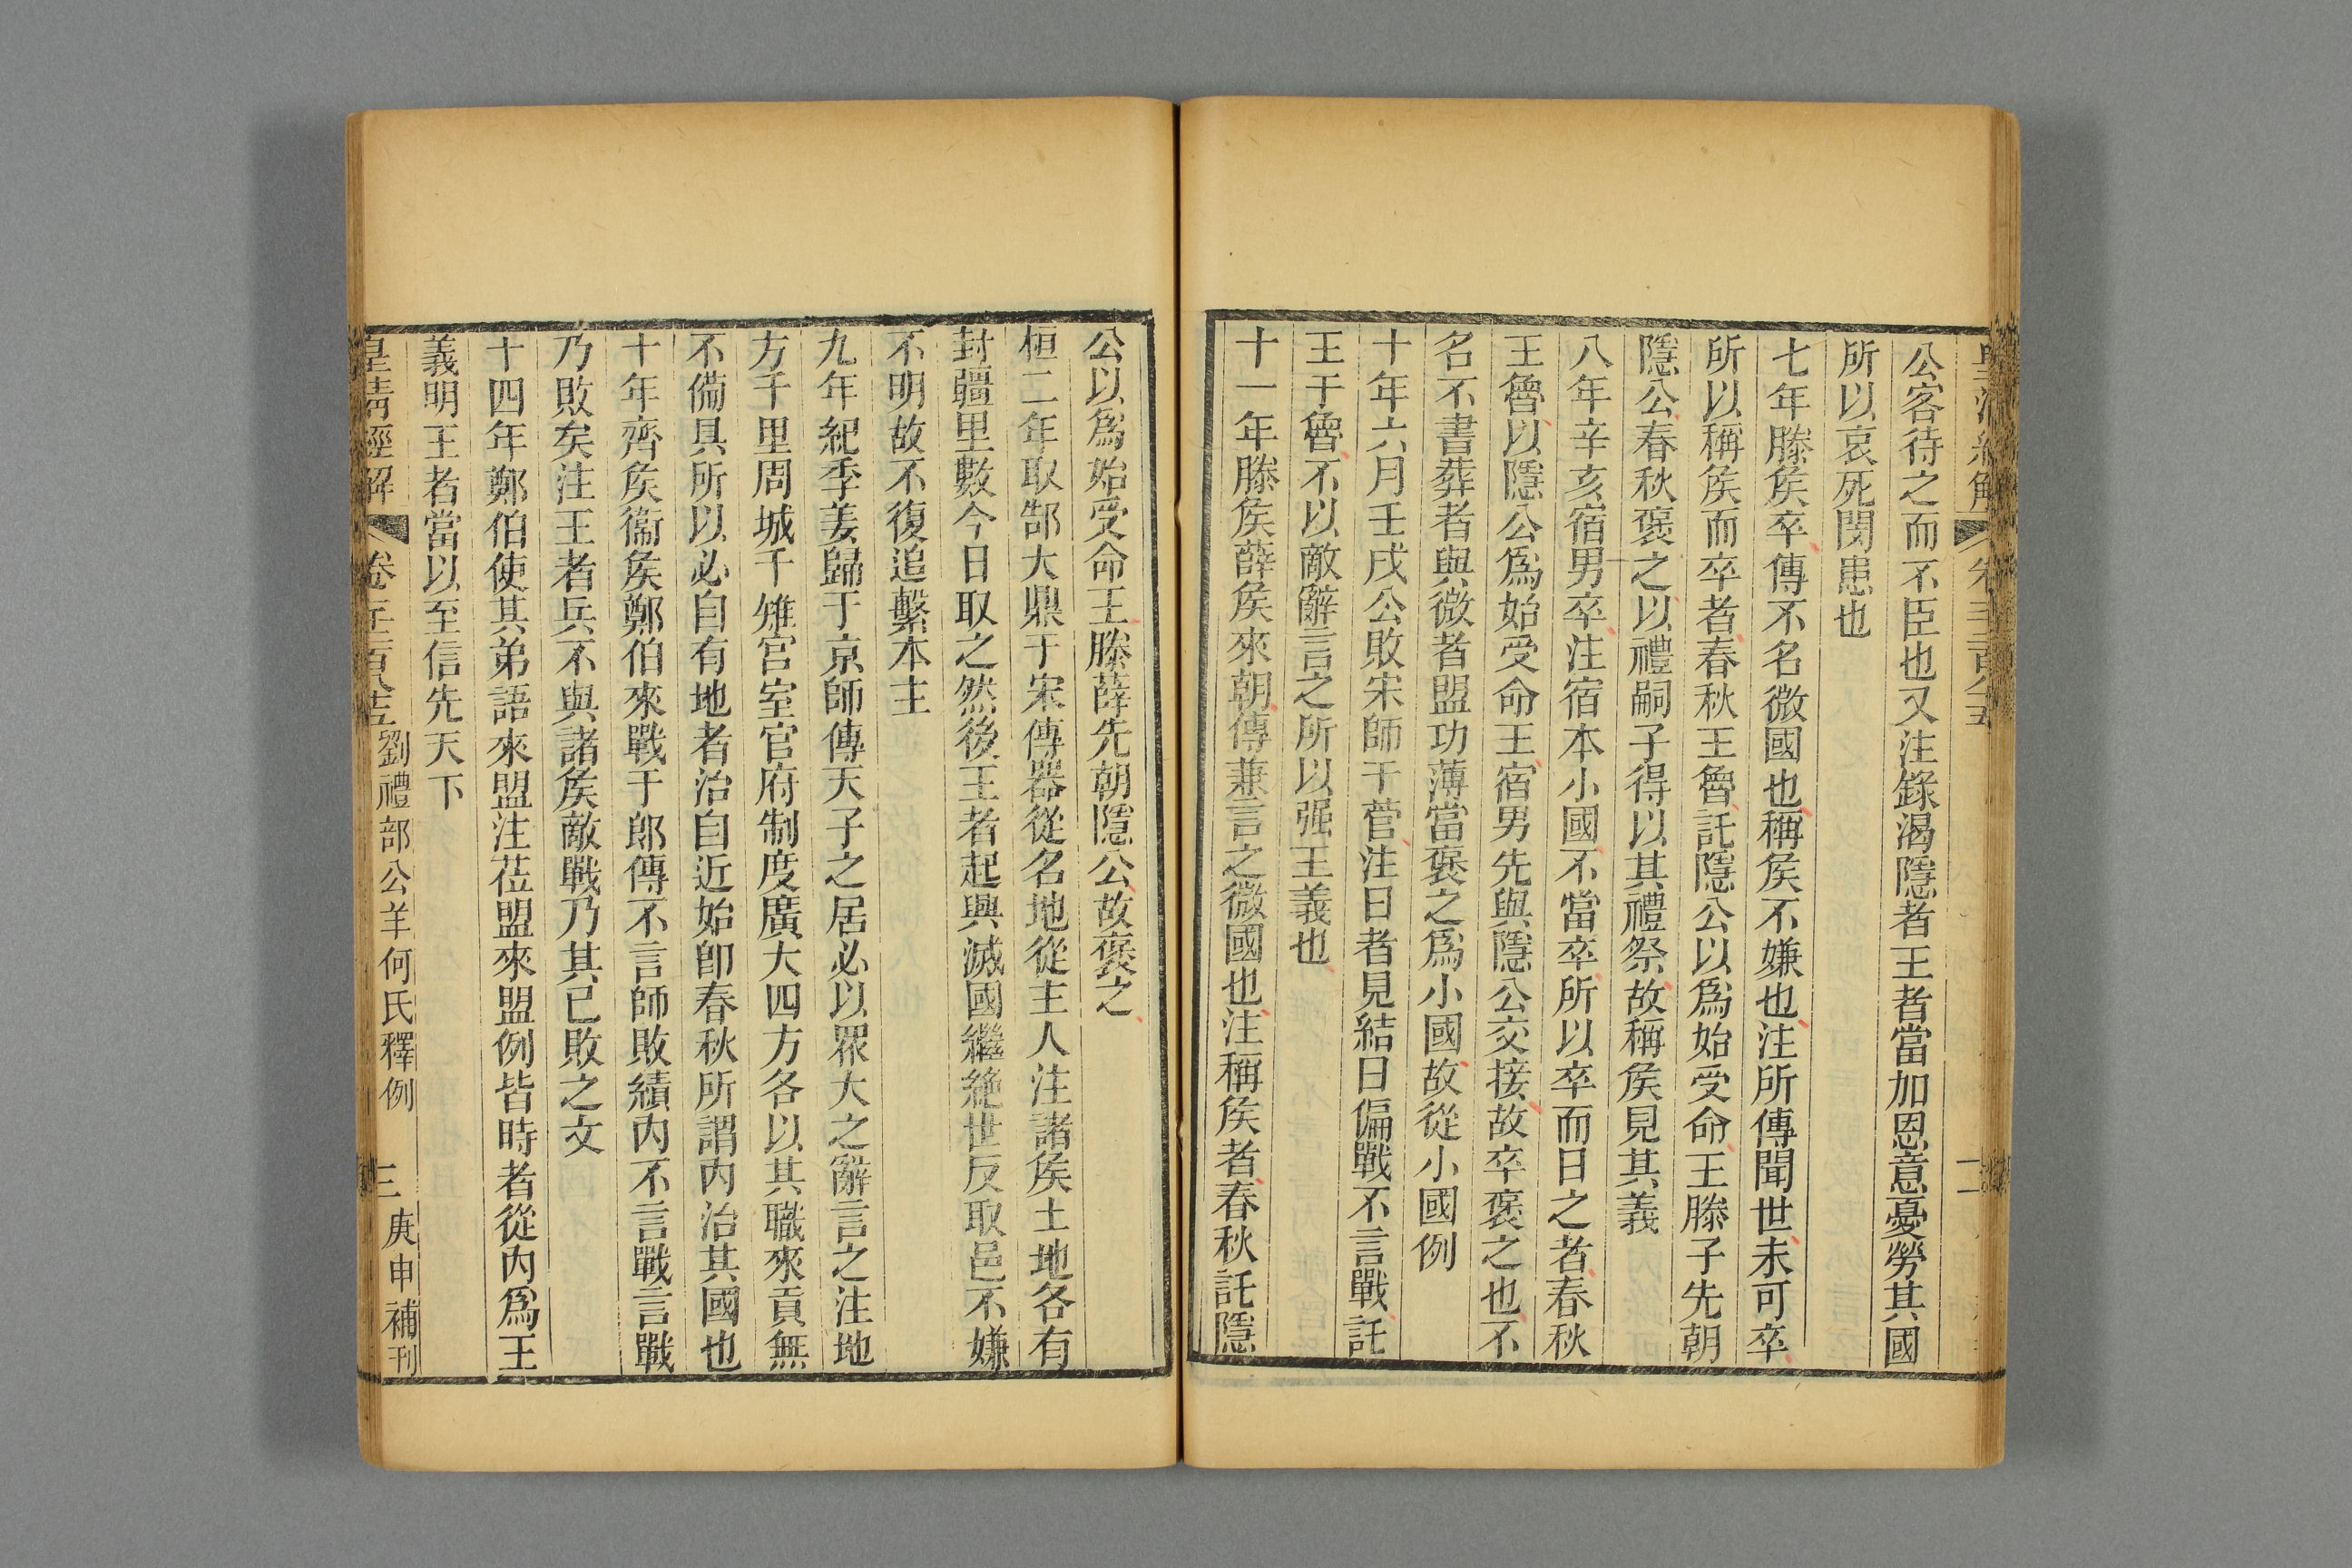 公客待之而不臣也又注錄渴隱者王者當加恩意憂勞其國
所以哀死閔患也
七年滕侯卒傳不名微國也稱侯不嫌也注所傳聞世未可卒
所以稱侯而卒者春秋王魯託隱公以爲始受命王滕子先朝
隱公春秋褒之以禮嗣子得以其禮祭故稱侯見其義
八年辛亥宿男卒注宿本小國不當卒所以卒而日之者春秋
王魯以隱公爲始受命王宿男先與隱公交接故卒褒之也不
名不書葬者與微者盟功薄當褒之爲小國故從小國例
十年六月壬戌公敗宋師于菅注日者見結日偏戰不言戰託
王于魯不以敵辭言之所以强王義也
十一年滕侯薛侯來朝傳兼言之微國也注稱侯者春秋託隱
公以爲始受命王滕薛先朝隱公故褒之
桓二年取郜大鼎于宋傳器從名地從主人注諸侯土地各有
封疆里數今日取之然後王者起興滅國繼絶世反取邑不嫌
不明故不復追繫本主
九年紀季姜歸于京師傳天子之居必以眾大之辭言之注地
方千里周城千雉宮室官府制度廣大四方各以其職來貢無
不備具所以必自有地者治自近始卽春秋所謂內治其國也
十年齊侯衞侯鄭伯來戰于郎傳不言師敗績內不言戰言戰
乃敗矣注王者兵不與諸侯敵戰乃其已敗之文
十四年鄭伯使其弟語來盟注莅盟來盟例皆時者從內爲王
義明王者當以至信先天下
皇清經解 卷千二百八十五 劉禮部公羊何氏釋例 三 庚申補刊